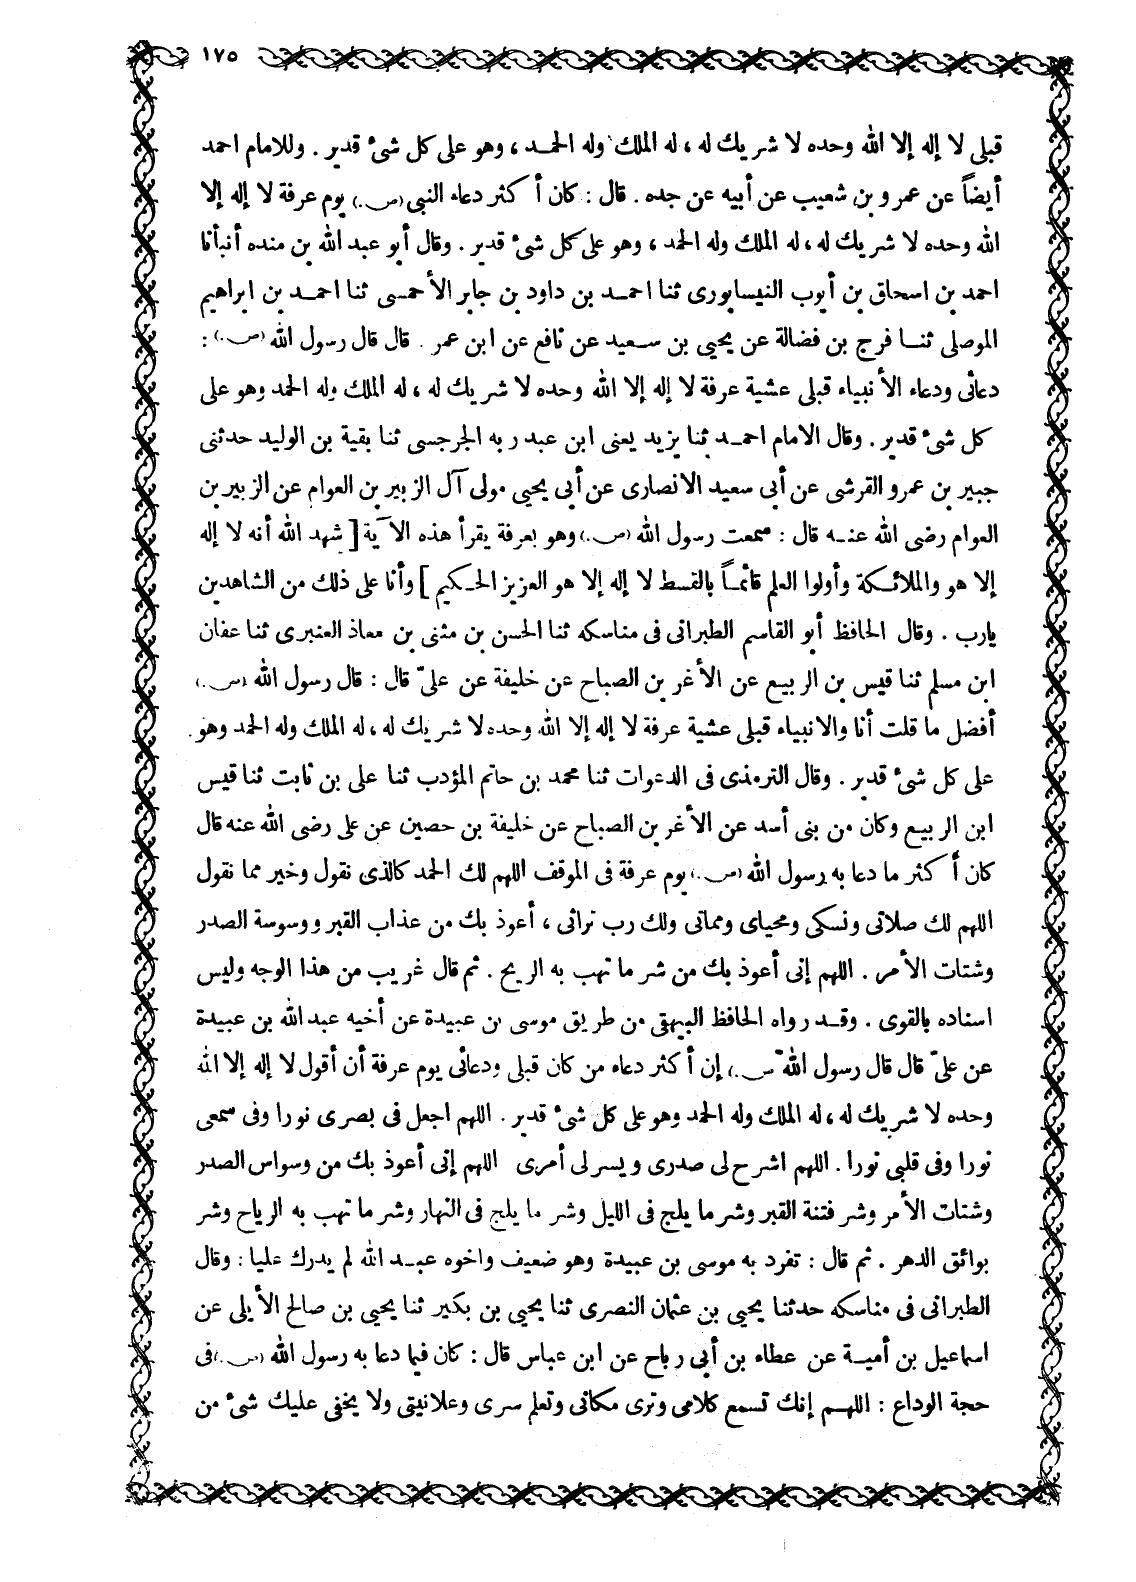 ١٧٥
قبلى لا إله إلا الله وحده لا شريك له ، له الملك وله الحمد ، وهو على كل شىء قدير . وللامام احمد
أيضاً عن عمرو بن شعيب عن أبيه عن جده . قال : كان أكثر دعاء النبى (ص.) يوم عرفة لا إله إلا
الله وحده لا شريك له ، له الملك وله الحمد ، وهو على كل شىء قدير . وقال أبو عبد الله بن منده أنبأنا
احمد بن اسحاق بن أيوب النيسابورى ثنا احمد بن داود بن جابر الأحمسى ثنا احمد بن ابراهيم
الموصلى ثنا فرج بن فضالة عن يحيى بن سعيد عن نافع عن ابن عمر . قال قال رسول الله (ص.) :
دعائى ودعاء الأنبياء قبلى عشية عرفة لا إله إلا الله وحده لا شريك له ، له الملك وله الحمد وهو على
كل شىء قدير . وقال الامام احمد ثنا يزيد يعنى ابن عبد ربه الجرجسى ثنا بقية بن الوليد حدثنى
جبير بن عمرو القرشى عن أبى سعيد الانصارى عن أبى يحيى مولى آل الزبير بن العوام عن الزبير بن
العوام رضى الله عنه قال : سمعت رسول الله (ص.) وهو بعرفة يقرأ هذه الآية [ شهد الله أنه لا إله
إلا هو والملائكة وأولوا العلم قائماً بالقسط لا إله إلا هو العزيز الحكيم ] وأنا على ذلك من الشاهدين
يارب . وقال الحافظ أبو القاسم الطبرانى فى مناسكه ثنا الحسن بن مثنى بن معاذ العنبرى ثنا عفان
ابن مسلم ثنا قيس بن الربيع عن الأغر بن الصباح عن خليفة عن علىّ قال : قال رسول الله (ص.)
أفضل ما قلت أنا والانبياء قبلى عشية عرفة لا إله إلا الله وحده لا شريك له ، له الملك وله الحمد وهو
على كل شىء قدير . وقال الترمذى فى الدعوات ثنا محمد بن حاتم المؤدب ثنا على بن ثابت ثنا قيس
ابن الربيع وكان من بنى أسد عن الأغر بن الصباح عن خليفة بن حصين عن على رضى الله عنه قال
كان أكثر ما دعا به رسول الله (ص.) يوم عرفة فى الموقف اللهم لك الحمد كالذى نقول وخير مما نقول
اللهم لك صلاتى ونسكى ومحياى ومماتى ولك رب تراثى ، أعوذ بك من عذاب القبر ووسوسة الصدر
وشتات الأمر . اللهم إنى أعوذ بك من شر ما تهب به الريح . ثم قال غريب من هذا الوجه وليس
اسناده بالقوى . وقد رواه الحافظ البيهقى من طريق موسى بن عبيدة عن أخيه عبد الله بن عبيدة
عن علىّ قال قال رسول الله (ص.) إن أكثر دعاء من كان قبلى ودعائى يوم عرفة أن أقول لا إله إلا الله
وحده لا شريك له ، له الملك وله الحمد وهو على كل شىء قدير . اللهم اجعل فى بصرى نورا وفى سمعى
نورا وفى قلبى نورا . اللهم اشرح لى صدرى ويسر لى أمرى اللهم إنى أعوذ بك من وسواس الصدر
وشتات الأمر وشر فتنة القبر وشر ما يلج فى الليل وشر ما يلج فى النهار وشر ما تهب به الرياح وشر
بوائق الدهر . ثم قال : تفرد به موسى بن عبيدة وهو ضعيف واخوه عبد الله لم يدرك عليا : وقال
الطبرانى فى مناسكه حدثنا يحيى بن عثمان النصرى ثنا يحيى بن بكير ثنا يحيى بن صالح الأيلى عن
اسماعيل بن أمية عن عطاء بن أبى رباح عن ابن عباس قال : كان فيما دعا به رسول الله (ص.) فى
حجة الوداع : اللهم إنك تسمع كلامى وترى مكانى وتعلم سرى وعلانيتى ولا يخفى عليك شىء من